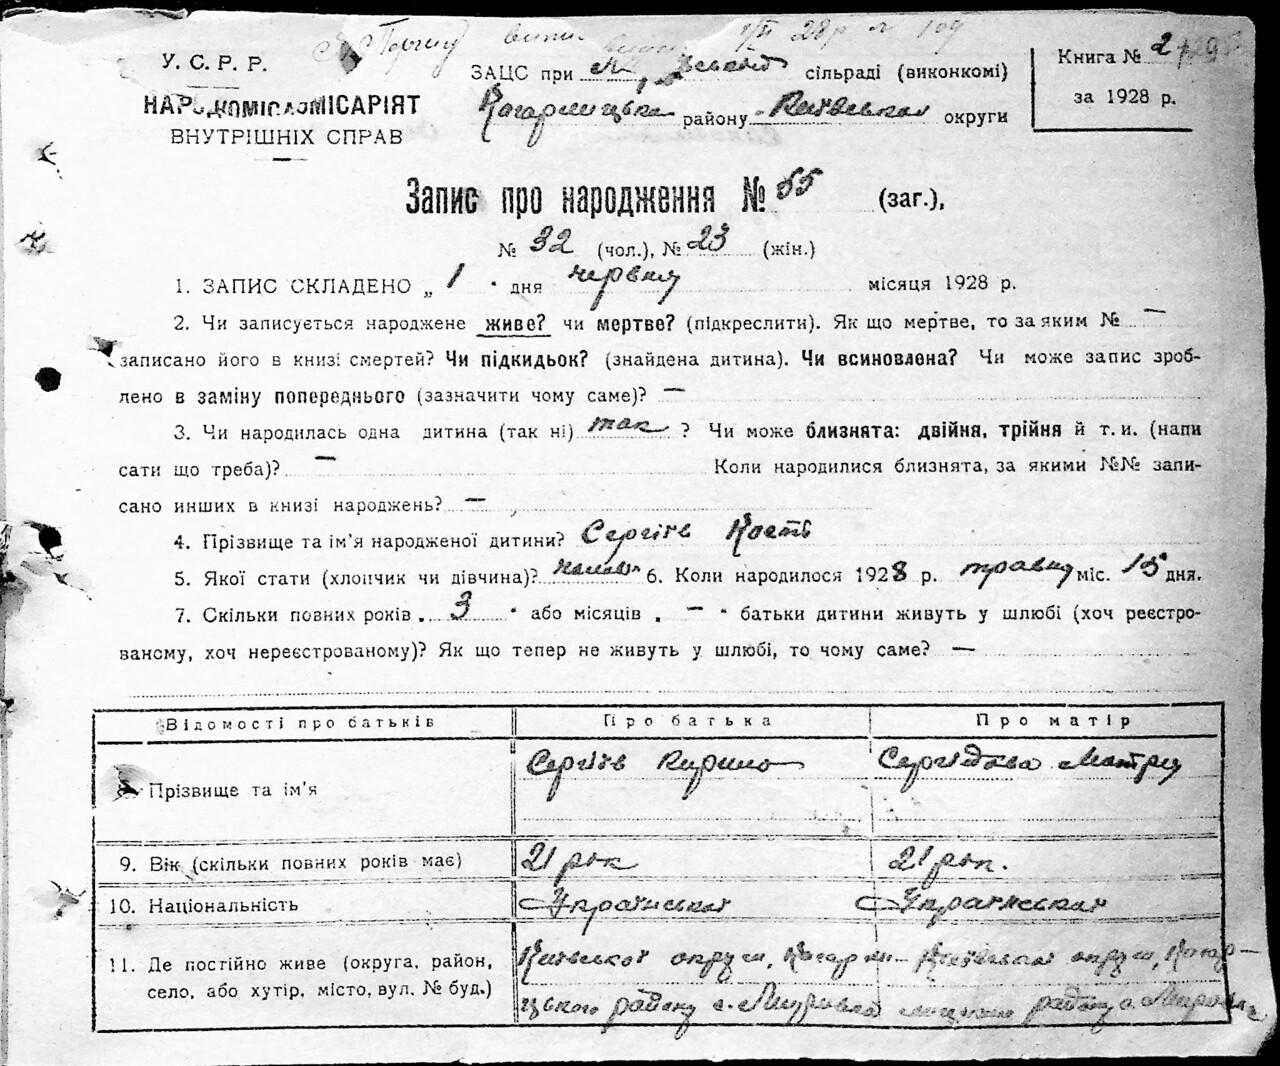 28 р
У. С. Р. Р.
НАРОДКОМІСАРІЯТ
ВНУТРІШНІХ СПРАВ
ЗАЦС при сільраді (виконкомі)
Кагарлицька району Київська округи
Книга № 2
за 1928 р.
Запис про народження № 55 (заг.),
№ 32 (чол.), № 23 (жін.)
1. ЗАПИС СКЛАДЕНО „ 1 " дня червня місяця 1928 р.
2. Чи записується народжене живе? чи мертве? (підкреслити). Як що мертве, то за яким № —
записано його в книзі смертей? Чи підкидьок? (знайдена дитина). Чи всиновлена? Чи може запис зроб-
лено в заміну попереднього (зазначити чому саме)? —
3. Чи народилась одна дитина (так ні) так ? Чи може близнята: двійня, трійня й т. и. (напи
сати що треба)? — Коли народилися близнята, за якими №№ запи-
сано инших в книзі народжень? —
4. Прізвище та ім'я народженої дитини? Сергієв Кость
5. Якої стати (хлопчик чи дівчина)? 6. Коли народилося 1928 р. травня міс. 15 дня.
7. Скільки повних років „ 3 " або місяців „ — " батьки дитини живуть у шлюбі (хоч реєстро-
ваному, хоч нереєстрованому)? Як що тепер не живуть у шлюбі, то чому саме? —
Відомості про батьків Про батька Про матір
Прізвище та ім'я Сергієв Кирило
9. Вік (скільки повних років має) 21 рок 21 рок.
10. Національність Українська Українська
11. Де постійно живе (округа, район, Київської округи, Кагарли- Київської округи, Кагар-
село, або хутір, місто, вул. № буд.) цького району с. району с.